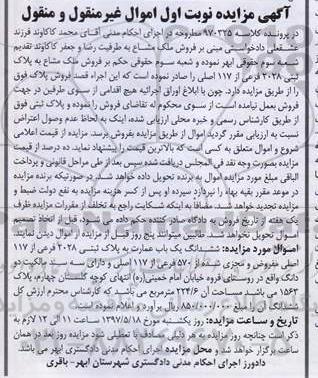 آگهی مزایده نوبت اول اموال غیرمنقول و منقول
در پرونده کلاسه ۹۷۰۳۲۵ مطروحه در اجرای احکام مدنی آقای محمد کاکاوند فرزند
عشقعلی دادخواستی مبنی بر فروش ملک مشاع به طرفیت رضا و جعفر کاکاوند تقدیم
شعبه سوم حقوقی ابهر نموده و شعبه سوم حقوقی حکم بر فروش ملک مشاع به پلاک
ثبتی ۲۰۲۸ فرعی از ۱۱۷ اصلی را صادر نموده است که این اجراء قصد فروش پلاک فوق
را از طریق مزایده دارد. چون با ابلاغ اوراق اجرائیه هیچ اقدامی از سوی طرفین در جهت
فروش بعمل نیامده است از سوی محکوم له تقاضای فروش را نموده و پلاک ثبتی فوق
از طریق کارشناس رسمی و خبره محلی ارزیابی شده، اینک به لحاظ عدم وصول اعتراض
نسبت به ارزیابی مقرر گردید اموال از طریق مزایده بفروش برسد. مزایده از قیمت اعلامی
شروع و اموال متعلق به کسی است که بالاترین قیمت را پیشنهاد نماید. ده درصد از قیمت
مزایده بصورت وجه نقد فی المجلس دریافت شده سپس بعد از طی مراحل قانونی و پرداخت
الباقی مبلغ مورد مزایده اموال به برنده تحویل داده خواهد شد. در صورتیکه برنده مزایده
در موعد مقرر بقیه بهاء را نپردازد سپرده او پس از کسر هزینه مزایده به نفع دولت ضبط و
مزایده تجدید خواهد شد. مضافا به اینکه شکایت راجع به تخلف از مقررات مزایده ظرف
یک هفته از تاریخ فروش به دادگاه صادر کننده حکم داده می شود، قبل از اتخاذ تصمیم
مال تحویل نخواهد شد. طالبین میتوانند پنج روز قبل از مزایده از اموال دیدن نمایند.
اموال مورد مزایده: ششدانگ یک باب عمارت به پلاک ثبتی ۲۰۲۸ فرعی از ۱۱۷
اصلی مفروض و مجزی شده از ۵۷۰ فرعی از ۱۱۷ اصلی و دارای سه سند مالکیت دو
دانگ واقع در روستای قروه خیابان امام خمینی(ره) انتهای کوچه گلستان چهارم، پلاک
۱۵۶۳ می باشد مساحت آن ۲۲۴/۶ مترمربع می باشد که کارشناس محترم ارزش کل
ششدانگ آن را مبلغ ۸۵۰/۰۰۰/۰۰۰ ریال برآورد و اعلام نموده است.
تاریخ و ساعت مزایده: روز یکشنبه مورخ ۱۳۹۷/۵/۱۸ از ساعت ۱۱ الی ۱۲ لازم به
ذکر است چنانچه روز مزایده به هر دلیلی مصادف با تعطیلی شود مزایده روز بعد در همان
ساعت برگزار خواهد شد و محل مزایده اجرای احکام مدنی دادگستری ابهر می باشد.
دادورز اجرای احکام مدنی دادگستری شهرستان ابهر- باقری